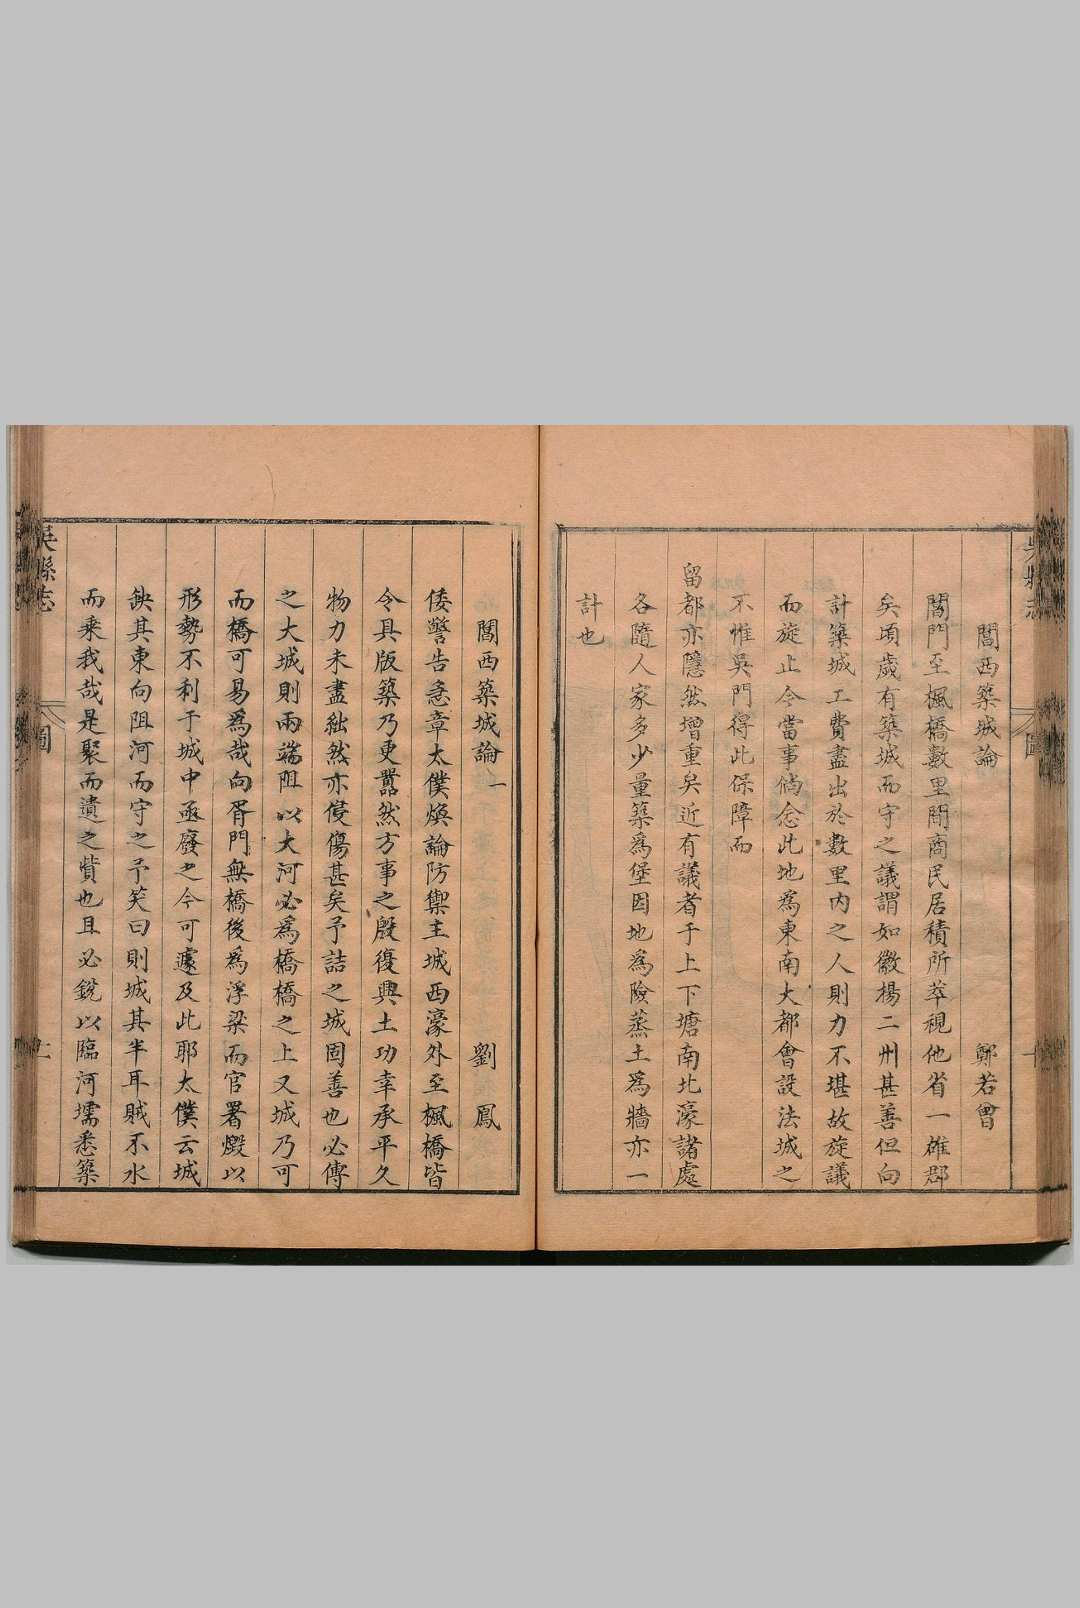 閶西築城論 鄭若曾
閶門至楓橋數里間商民居積所萃視他省一雄郡
矣頃歲有築城而守之議謂如徽揚二州甚善但向
計築城工費盡出於數里內之人則力不堪故旋議
而旋止今當事倘念此地為東南大都會設法城之
不惟吳門得此保障而
留都亦隱然增重矣近有議者于上下塘南北濠諸處
各隨人家多少量築為堡因地為險蒸土為牆亦一
計也
閶西築城論一 劉鳳
倭警告急章太僕煥論防禦主城西濠外至楓橋皆
令具版築乃更囂然方事之殷復興土功幸承平久
物力未盡絀然亦侵傷甚矣予詰之城固善也必傳
之大城則兩端阻以大河必為橋橋之上又城乃可
而橋可易為哉向胥門無橋後為浮梁而官署燬以
形勢不利于城中亟廢之今可遽及此耶太僕云城
缺其東向阻河而守之予笑曰則城其半耳賊不水
而乘我哉是聚而遺之貲也且必銳以臨河壖悉築
吳縣志
圖